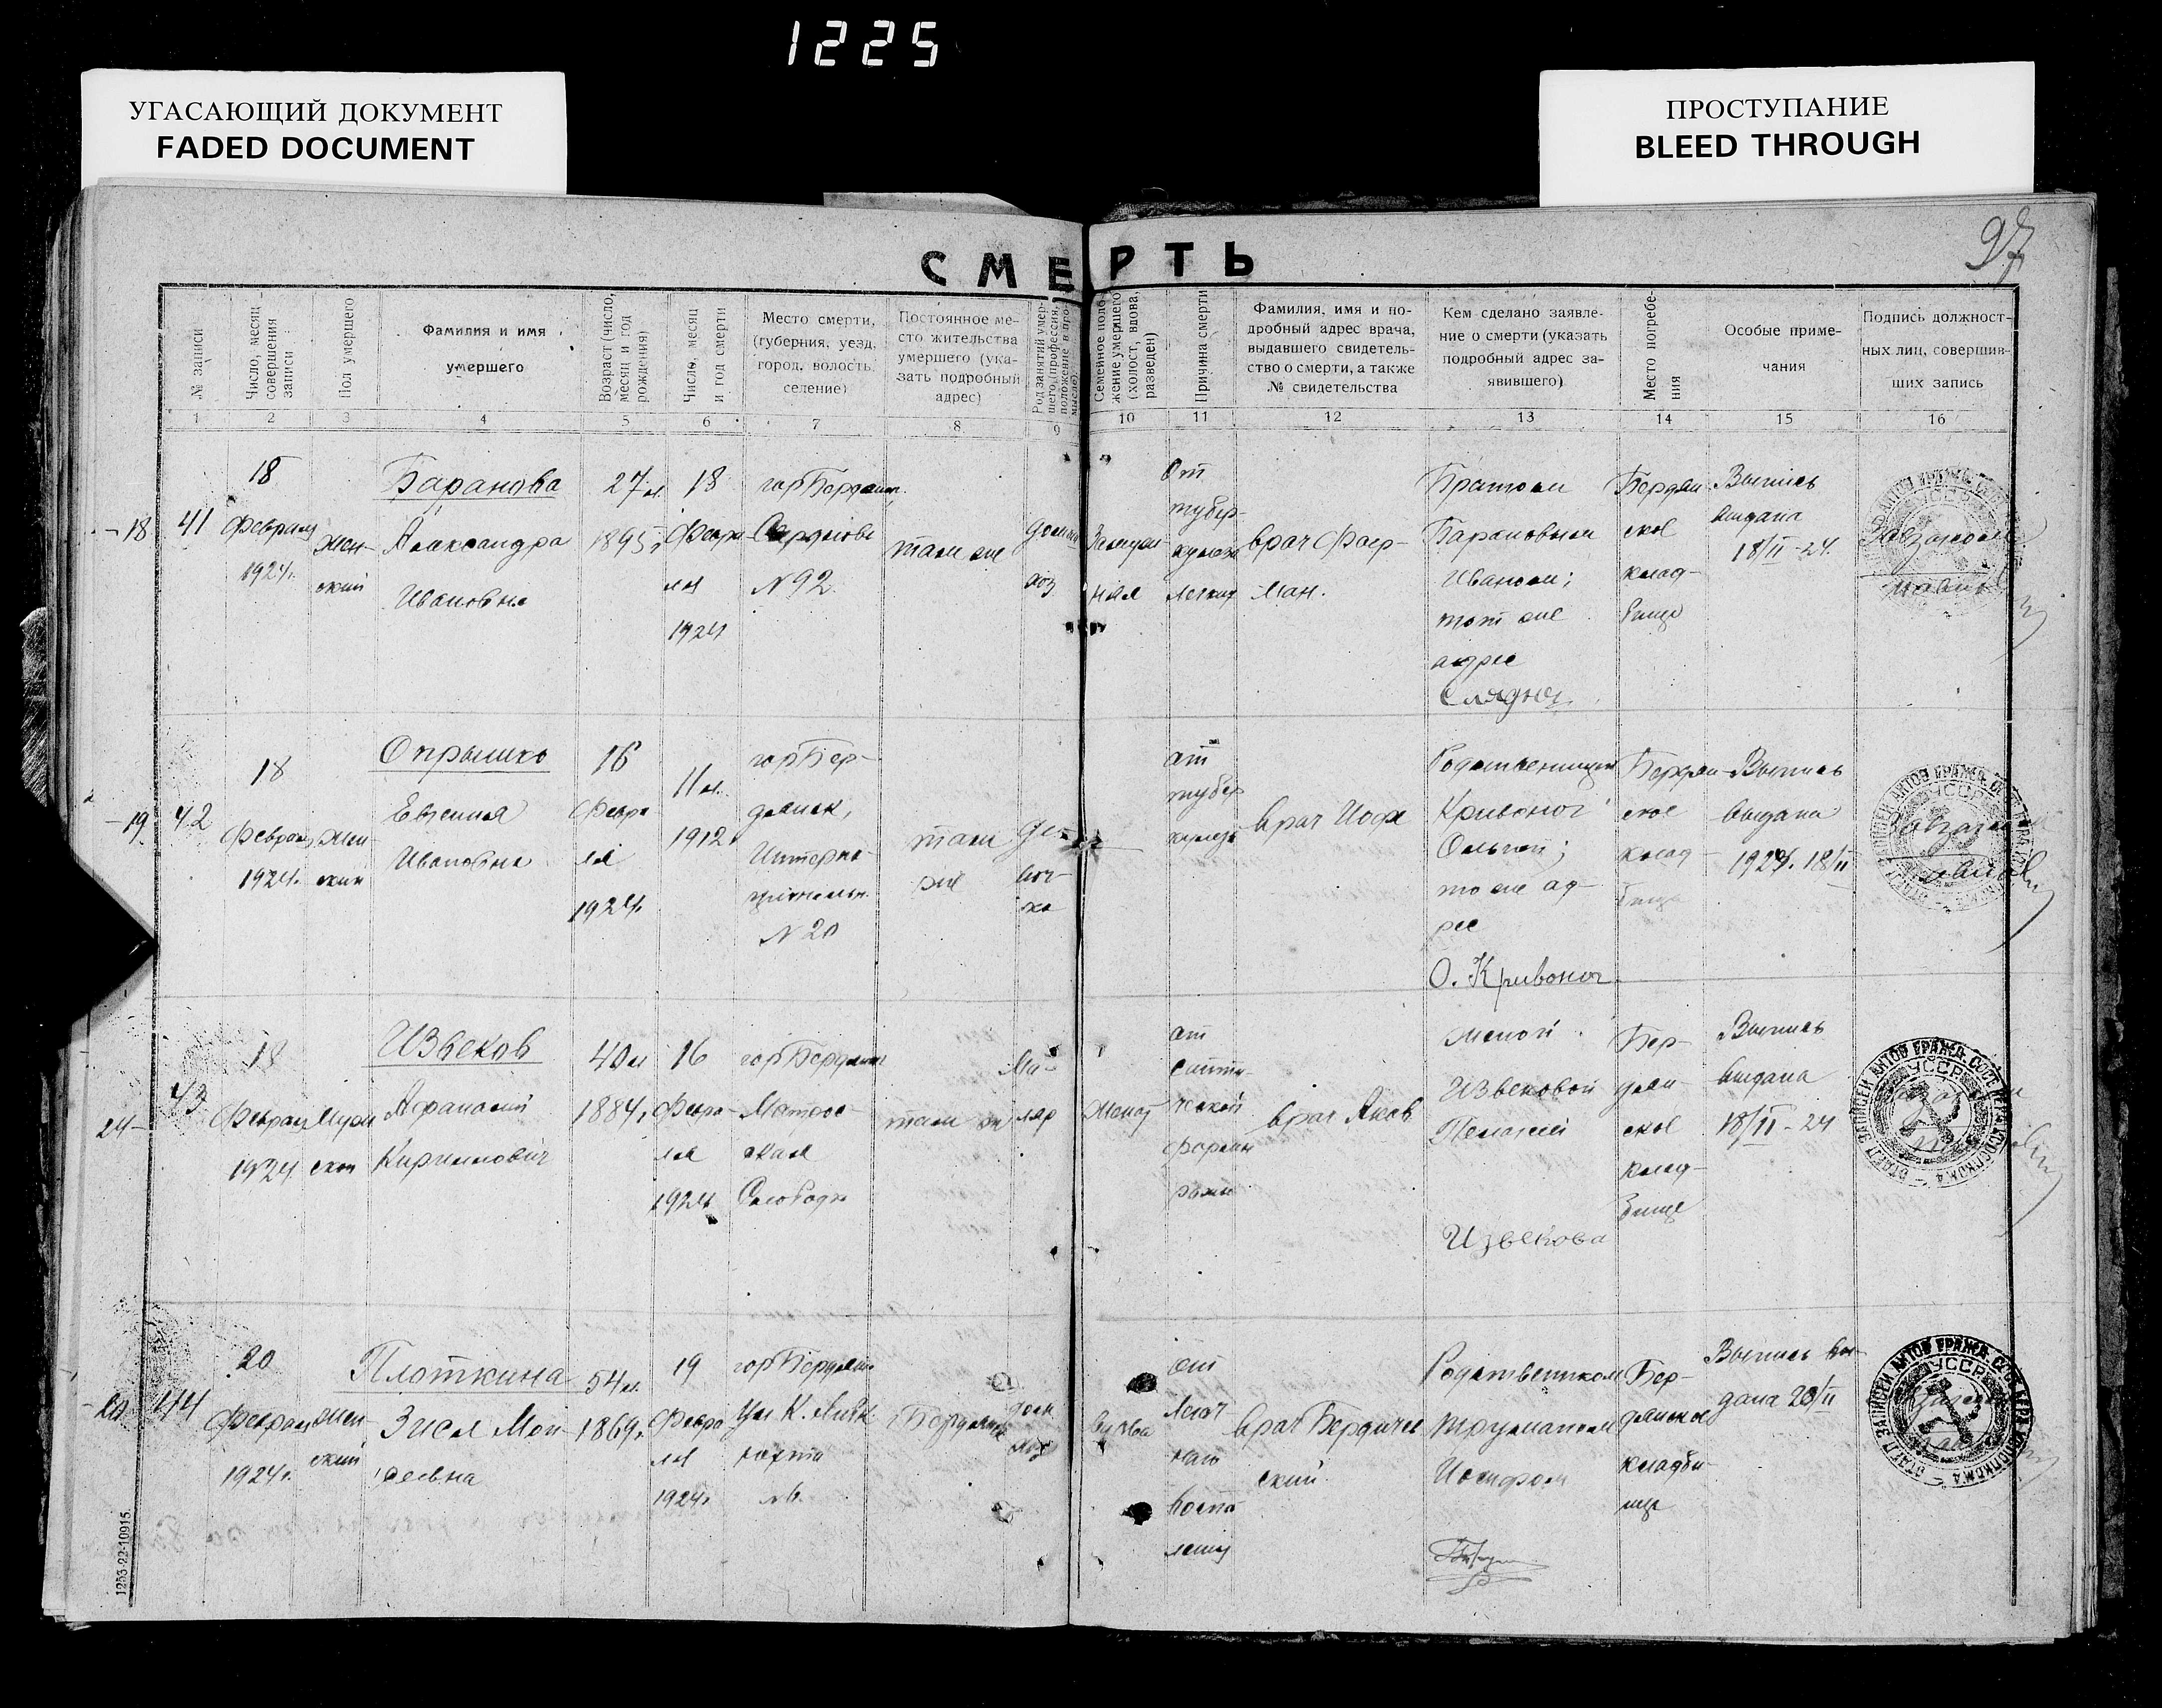 1225
УГАСАЮЩИЙ ДОКУМЕНТ
FADED DOCUMENT
ПРОСТУПАНИЕ
BLEED THROUGH
97
СМЕРТЬ
№ записи
Число, месяц совершения записи
Пол умершего
Фамилия и имя
умершего
Возраст (число, месяц и год рождения)
Число, месяц и год смерти
Место смерти,
(губерния, уезд,
город, волость,
селение)
Постоянное ме-
сто жительства
умершего (ука-
зать подробный
адрес)
Род занятий умер-
шего, профессия,
положение в про-
мысле)
Семейное поло-
жение умершего
(холост, вдова,
разведен)
Причина смерти
Фамилия, имя и по-
дробный адрес врача,
выдавшего свидетель-
ство о смерти, а также
№ свидетельства
Кем сделано заявле-
ние о смерти (указать
подробный адрес за-
явившего)
Место погребе-
ния
Особые приме-
чания
Подпись должност-
ных лиц, совершив-
ших запись
1 2 3 4 5 6 7 8 9 10 11 12 13 14 15 16
18
41
18
февраля
1924г.
жен-
ский
Баранова
Александра
Ивановна
27 л.
1895г.
18
Февра
ля
1924
гор Бердянск.
N 92
там же
домаш
хоз
Замуж
няя
От
тубер-
кулеза
легких
врач Фаер-
ман.
Братом
Барановым
Иваном;
тот же
адрес
Бердян
ское
клад-
бище
Выпись
выдана
18/II-24.
19
42
18
Февраля
1924г.
жен
ский
Опрышко
Евгения
Ивановна
16
Февра
ля
1924г.
11 л.
1912
гор Бер-
дянск,
Интерна-
циональн.
N 20
там
же
де-
воч-
ка
от
тубер
кулеза
врач Иофе
Родственницей
Кривоног
Ольгой;
то же ад-
рес
О. Кривоног
Бердян-
ское
клад-
бище
Выпись
выдана
1924г. 18/II
24
43
18
Февраля
1924
Муж
ской
Извеков
Афанасий
Кириллович
40 л
1884г
16
Февра-
ля
1924
гор Бердянск
Матрос-
ская
Слободка
там же
Ма-
ляр
Женат
от
септи-
ческой
врач Яков
женой
Извековой
Пелагией
Извекова
Бер-
дян-
ское
клад-
бище
Выпись
выдана
18/II-24
20
44
20
Февраля
1924г.
жен
ский
Плоткина
Зисля Мои-
сеевна
54 л.
1869г.
19
Февра
ля
1924г
гор Бердянск
Ул К. Либк
нехта
N 6.
Бердянск
дом
хоз
Вдова
от
легоч
наго
воспа
ления
врач Бердичев
ский
Родственником
Трумапом
Иосифом
Бер-
дянское
кладби-
ще
Выпись вы-
дана 20/II
ОТДЕЛ ЗАПИСЕЙ АКТОВ ГРАЖД. СОСТ.
УССР
1253-22-10915